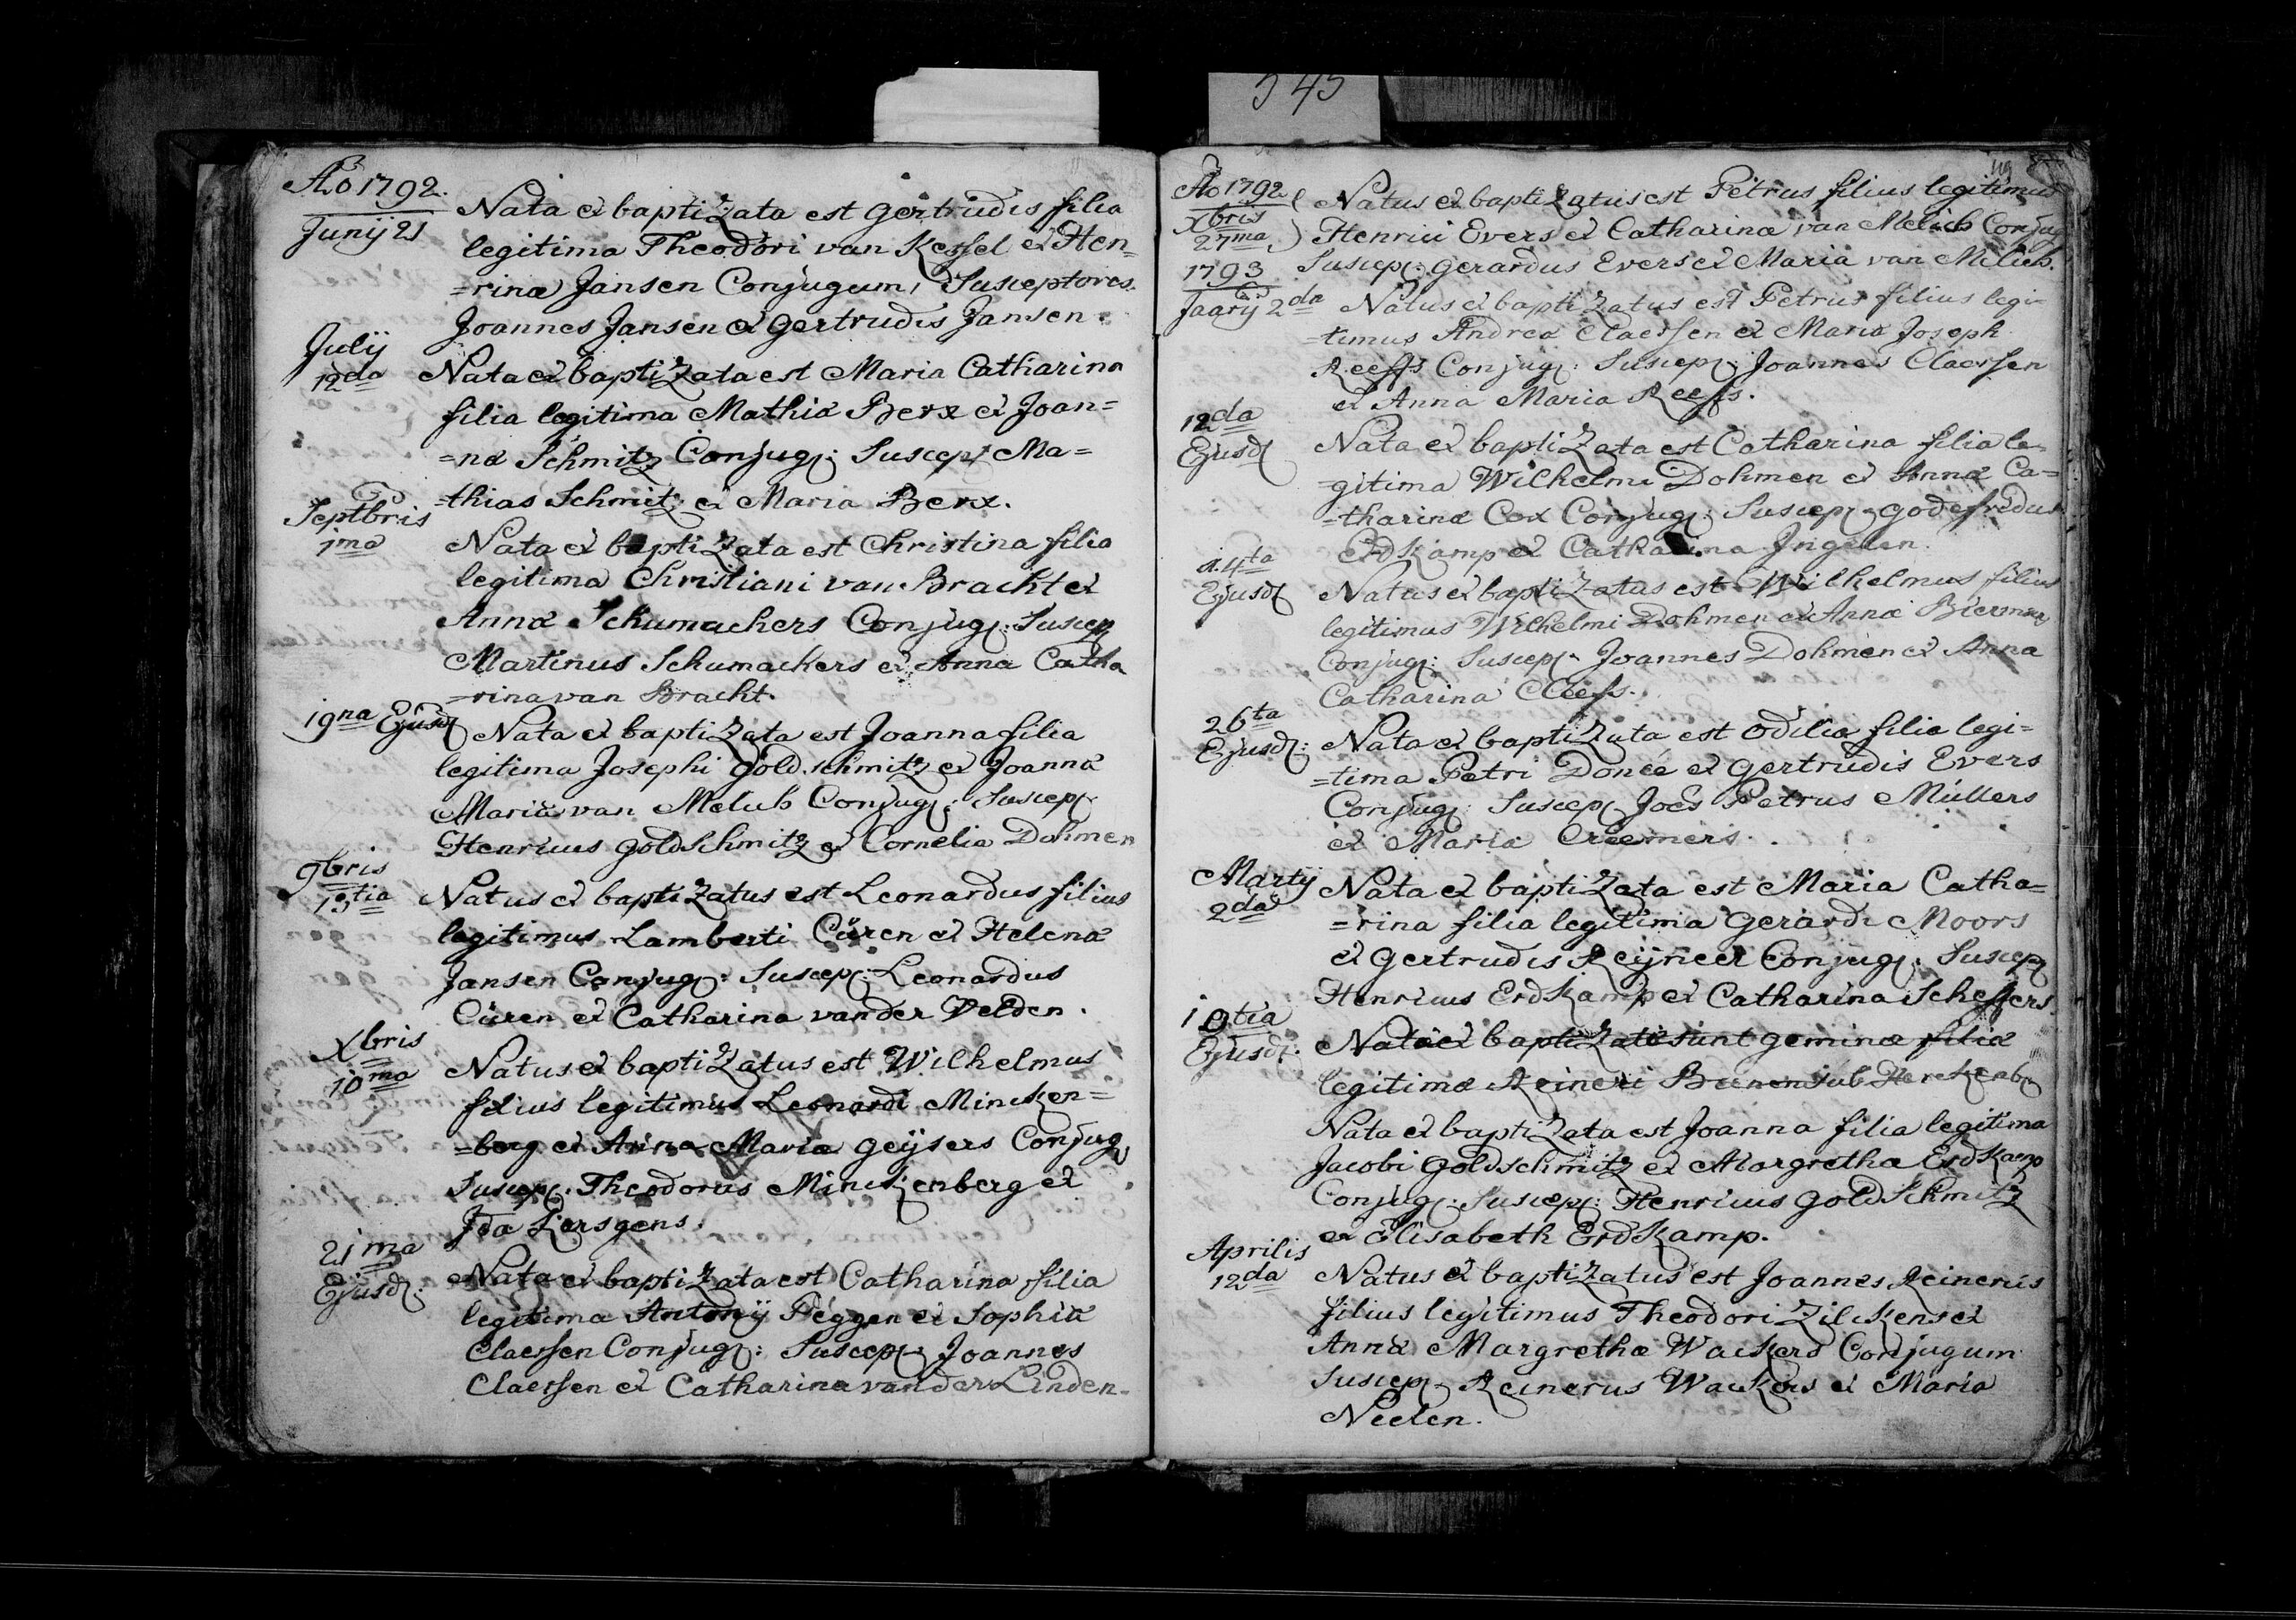 545
Ao 1792.
Junij 21
Nata et baptizata est Gertrudis filia
legitima Theodori van Kessel et Hen=
=rinæ Jansen Conjugum, Susceptores.
Joannes Jansen et Gertrudis Jansen.
Julij
12da
Nata et baptizata est Maria Catharina
filia legitima Mathiæ Berx et Joan=
=næ Schmitz Conjug: Suscep: Ma=
=thias Schmitz et Maria Berx.
Septbris
1ma
Nata et baptizata est Christina filia
legitima Christiani van Bracht et
Annæ Schumachers Conjug: Suscep
Martinus Schumackers et Anna Catha
=rina van Bracht.
19na Ejusd
Nata et baptizata est Joanna filia
legitima Josephi Goldschmitz et Joannæ
Mariæ van Melub Conjug: Suscep:
Henricus Goldschmitz et Cornelia Dohmen
9bris
13tia
Natus et baptizatus est Leonardus filius
legitimus Lamberti Cüren et Helenæ
Jansen Conjug: Suscep: Leonardus
Cüren et Catharina vander Velden.
Xbris
10ma
Natus et baptizatus est Wilhelmus
filius legitimus Leonardi Mincken=
=berg et Anna Maria Geijsers Conjug
Suscep: Theodorus Minckenberg et
Ida Liersgens.
21ma
Ejusd:
Nata et baptizata est Catharina filia
legitima Antonij Peggen et Sophiæ
Claessen Conjug: Suscep: Joannes
Claessen et Catharina van der Linden.
Ao 1792
Xbris
27ma
Natus et baptizatus est Petrus filius legitimus
Henrici Evers et Catharinæ van Melub Conjug
Suscep: Gerardus Evers et Maria van Melub.
1793
Jaarij 2da
Natus et baptizatus est Petrus filius legi=
=timus Andreæ Claessen et Mariæ Joseph
Reeffs Conjug: Suscep: Joannes Claessen
et Anna Maria Reeffs.
12da
Ejusd
Nata et baptizata est Catharina filia le
=gitima Wilhelmi Dohmen et Annæ Ca=
=tharinæ Cox Conjug: Suscep: Godefridus
Erdkamp et Catharina Ingelen.
14ta
Ejusd
Natus et baptizatus est Wilhelmus filius
legitimus Wilhelmi Dohmen et Annæ Bierman
Conjug: Suscep: Joannes Dohmen et Anna
Catharina Cleefs.
26ta
Ejusd:
Nata et baptizata est Odilia filia legi=
=tima Petri Doncé et Gertrudis Evers
Conjug: Suscep: Joes Petrus Müllers
et Maria Creemers.
Martij
2da
Nata et baptizata est Maria Catha=
=rina filia legitima Gerardi Moors
et Gertrudis Reijneer Conjug: Suscep
Henricus Erdkamp et Catharina Scheffers
Ejusd:
Natæ et baptizatæ sunt geminæ filiæ
legitimæ Reineri Beenen sub
Nata et baptizata est Joanna filia legitima
Jacobi Goldschmitz et Margrethæ Erdkamp
Conjug: Suscep: Henricus Goldschmitz
et Elisabeth Erdkamp.
Aprilis
12da
Natus et baptizatus est Joannes Reinerus
filius legitimus Theodori Zilikens et
Annæ Margrethæ Wackers Conjugum
Suscep: Reinerus Wackers et Maria
Neelen.